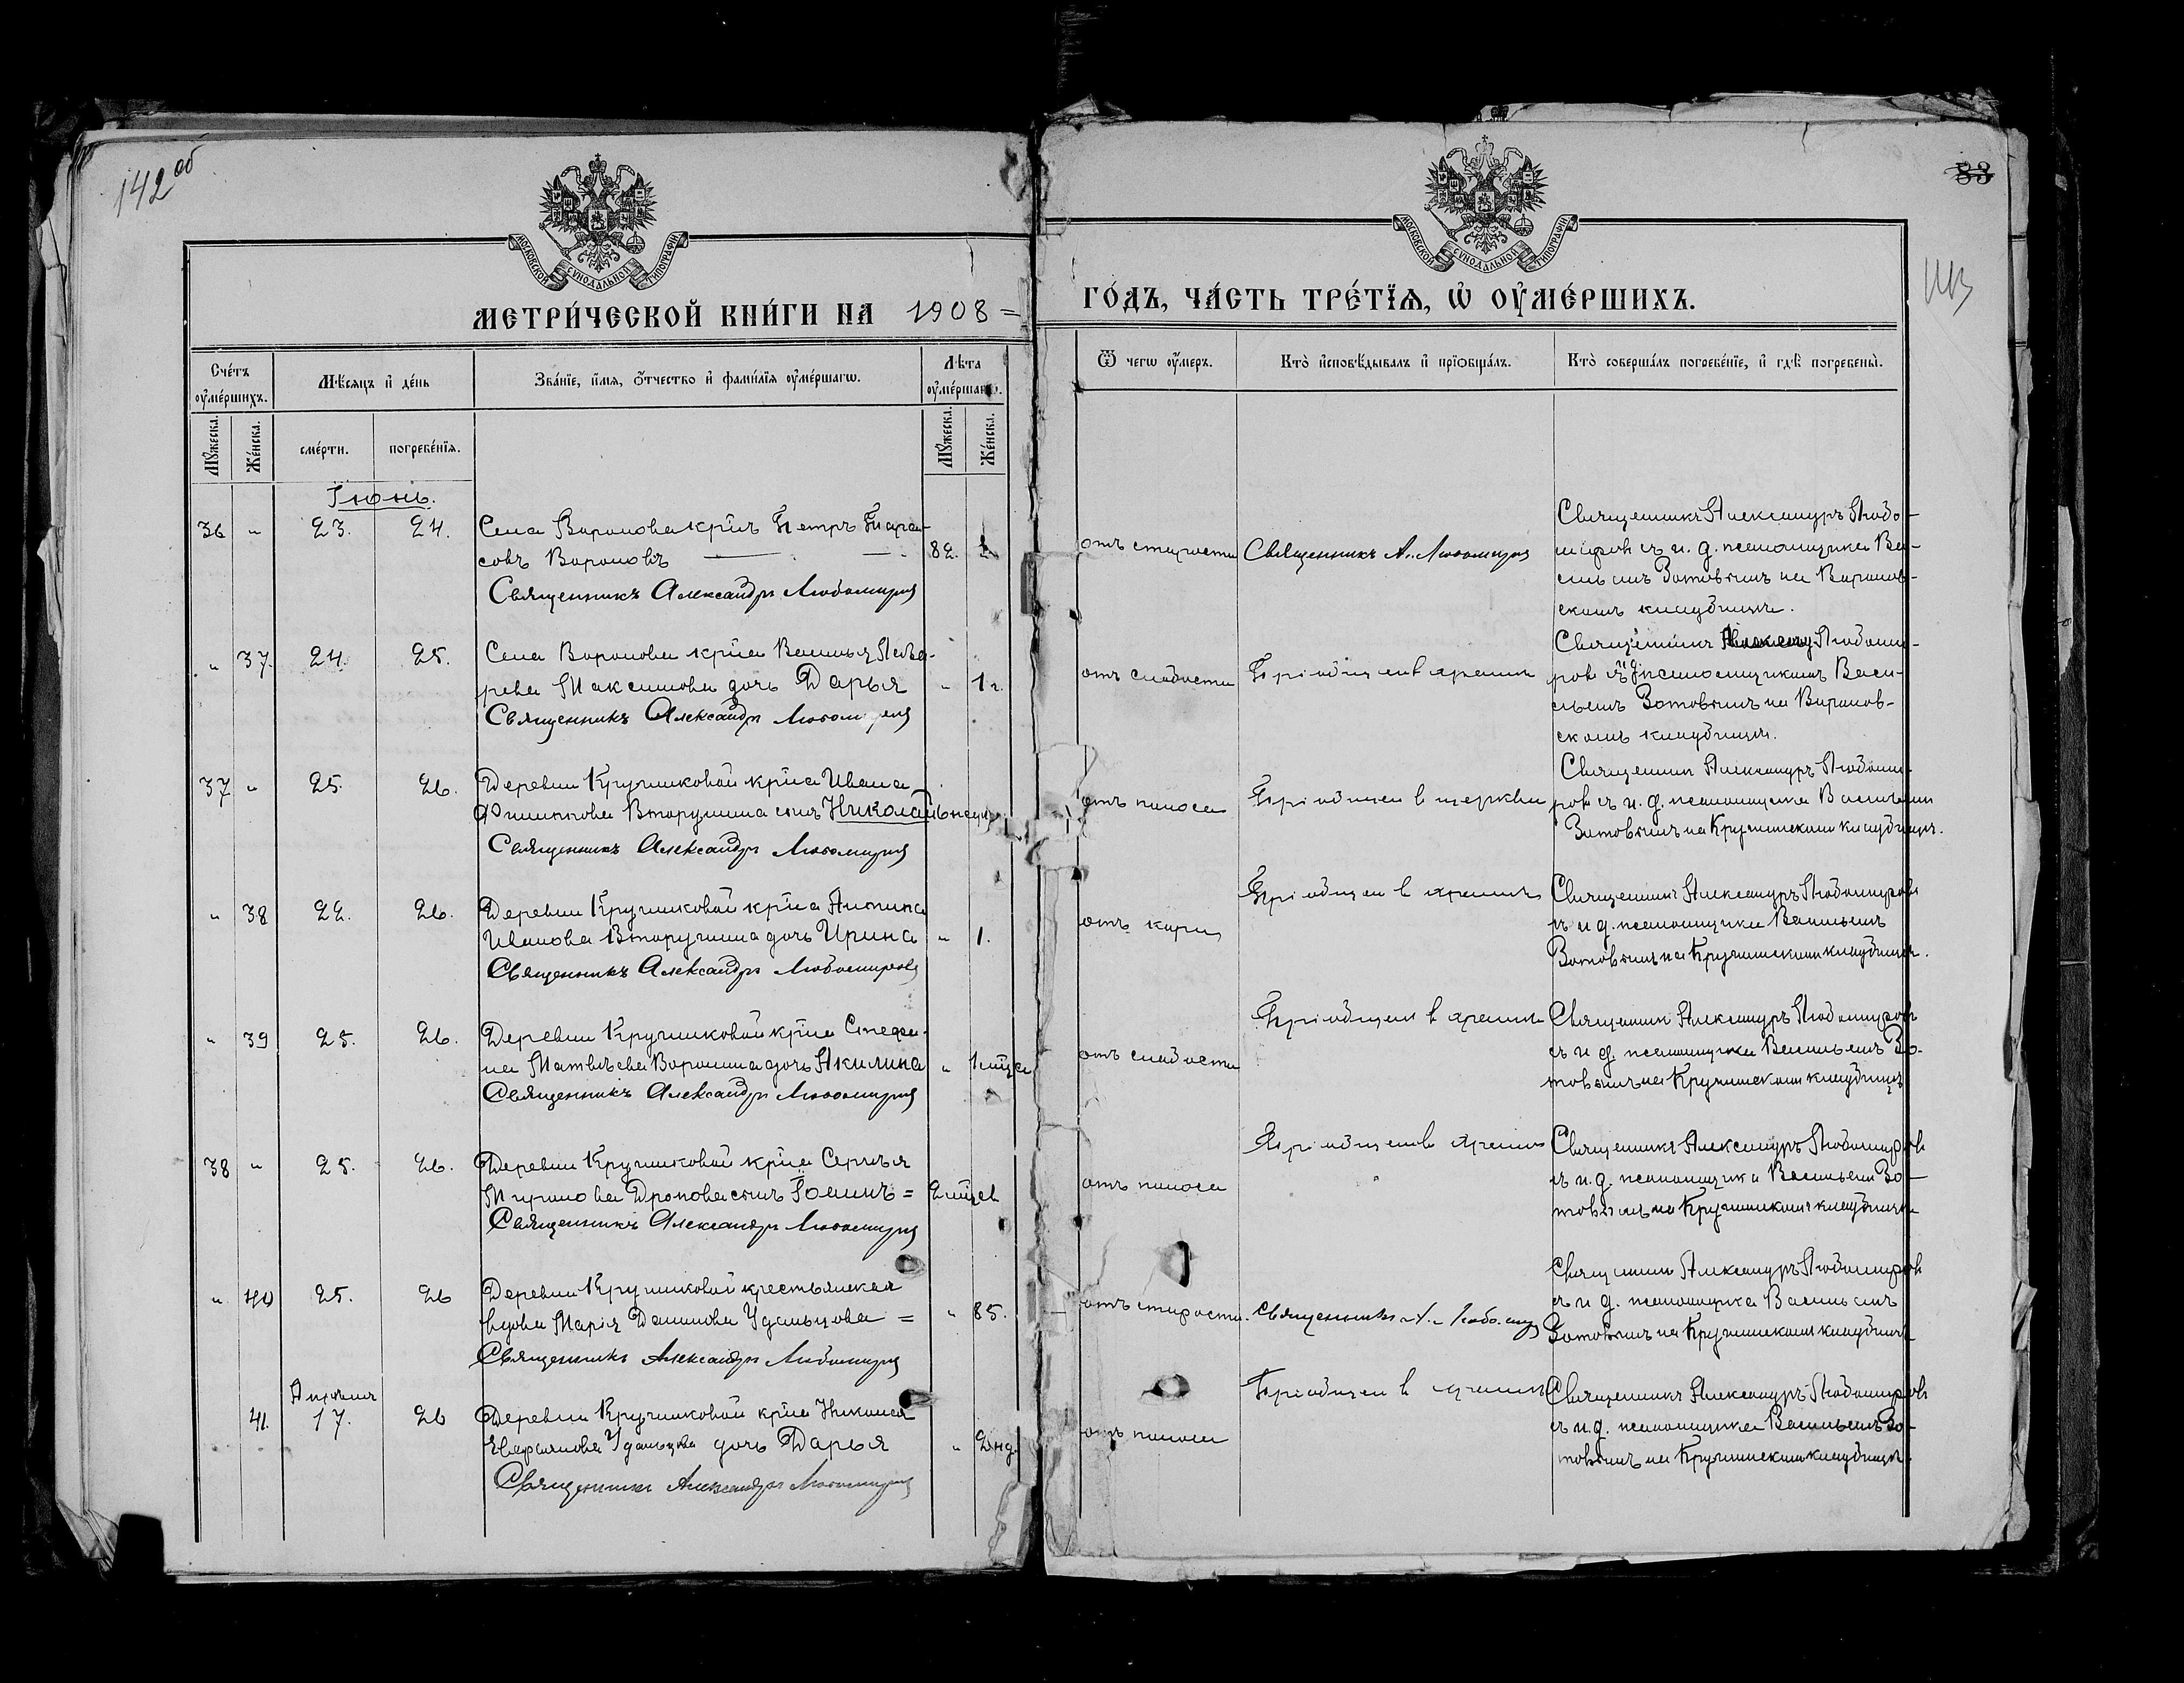 142 об
83
МОСКОВСКОЙ СУНОДАЛЬНОЙ ТИПОГРАФІИ
МОСКОВСКОЙ СУНОДАЛЬНОЙ ТИПОГРАФІИ
МЕТРИ́ЧЕСКОЙ КНИ́ГИ НА 1908 =
ГО́ДЪ, ЧА́СТЬ ТРЕ́ТЇѦ, Ѡ҆ ОУ҆МЕ́РШИХЪ.
Сче́тъ оу҆ме́ршихъ.
Мѣ́сяцъ и҆ де́нь
Зва́нїе, и҆́мя, ѻ҆́тчество и҆ фами́лїя оу҆ме́ршагѡ.
Лѣ́та оу҆ме́ршагѡ.
Мꙋ́жеска.
Же́нска.
сме́рти.
погребе́нїя.
Мꙋ́жеска.
Же́нска.
Ѿ чегѡ̀ оу҆́меръ.
Кто̀ и҆сповѣ́дывалъ и҆ прїѡбща́лъ.
Кто̀ соверша́лъ погребе́нїе, и҆ гдѣ̀ погребены̀.
Іюнь.
36 " 23. 24.
Села Воронова кр҃нъ Петръ Тара-
совъ Вороновъ
82.
Священникъ Александръ Любомировъ
отъ старости
Священникъ А. Любомировъ
Священникъ Александръ Любо-
мировъ съ и. д. псаломщика Ва-
сильемъ Зотовымъ на Воронов-
скомъ кладбищѣ.
" 37. 24. 25.
Села Воронова кр҃на Василья
Максимова дочь Дарья
" 1 г.
Священникъ Александръ Любомировъ
отъ слабости
Пріобщен в храмѣ
Священникъ Любоми-
ров съ и д псаломщикомъ Васи-
льемъ Зотовымъ на Воронов-
скомъ кладбищѣ.
37 " 25. 26.
Деревни Кручинковой кр҃на Ивана
Филиппова Вторушина сынъ Николай
Священникъ Александръ Любомировъ
отъ поноса
Пріобщен в церкви
Священник Александръ Любоми-
ровъ съ и. д. псаломщика Васильемъ
Зотовымъ на Кручинскомъ кладбищѣ.
" 38 22. 26.
Деревни Кручинковой кр҃на
Иванова Вторушина дочь Ирина
" 1.
Священникъ Александръ Любомировъ
отъ кори
Пріобщен в храмѣ
Священникъ Александръ Любомировъ
съ и д. псаломщика Васильемъ
Зотовымъ на Кручинскомъ кладбищѣ.
" 39 25. 26.
Деревни Кручинковой кр҃на Степа-
на Матвѣева Воронина дочь Акилина
" 1 мѣсяца
Священникъ Александръ Любомировъ
отъ слабости
Пріобщен в храмѣ
Священник Александръ Любомировъ
съ и д. псаломщика Васильемъ Зо-
товымъ на Кручинскомъ кладбищѣ
38 " 25. 26.
Деревни Кручинковой кр҃на Сергѣя
Миронова Дронова сынъ Іоаннъ =
2 мѣсяцев
Священникъ Александръ Любомировъ
отъ поноса
Пріобщен в храмѣ
Священникъ Александръ Любомировъ
съ и. д. псаломщика Васильемъ Зо-
товымъ на Кручинскомъ кладбищѣ
" 40 25. 26
Деревни Кручинковой крестьянская
вдова Марія Данилова Удальцова =
" 85.
Священникъ Александръ Любомировъ
отъ старости.
Священникъ А. Любомиров
Священник Александръ Любомиров
съ и д. псаломщика Васильемъ
Зотовымъ на Кручинскомъ кладбищѣ
Апрѣля
41. 17. 26
Деревни Кручинковой кр҃на Николая
Удальцова дочь Дарья
" 2 нед.
Священникъ Александръ Любомировъ
отъ поноса
Пріобщен в храмѣ
Священникъ Александръ Любомировъ
съ и. д. псаломщика Васильемъ Зо-
товымъ на Кручинскомъ кладбищѣ